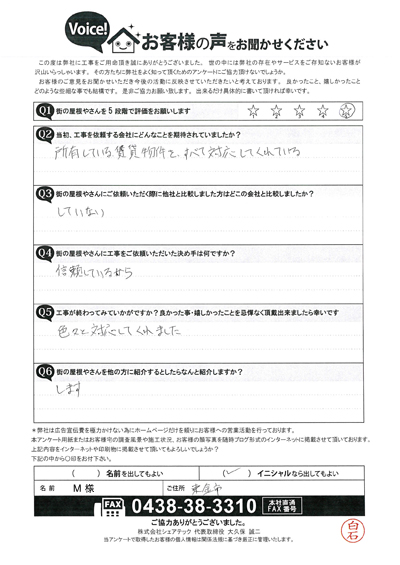 Voice!
お客様の声をお聞かせください
この度は弊社に工事をご用命頂き誠にありがとうございました。 世の中には弊社の存在やサービスをご存知ないお客様が
沢山いらっしゃいます。 その方たちに弊社をよく知って頂くためのアンケートにご協力頂けないでしょうか。
お客様のご意見をお聞かせいただき今後の活動に反映させていただきたいと考えております。 良かったこと、嬉しかったこと
どのような些細な事でも結構です。 是非ご協力お願い致します。 出来るだけ具体的に書いて頂ければ幸いです。
Q1 街の屋根やさんを5段階で評価をお願いします
1 2 3 4 5
Q2 当初、工事を依頼する会社にどんなことを期待されていましたか?
所有している賃貸物件を、すべて対応してくれている
Q3 街の屋根やさんにご依頼いただく際に他社と比較しました方はどこの会社と比較しましたか?
していない
Q4 街の屋根やさんに工事をご依頼いただいた決め手は何ですか?
信頼しているから
Q5 工事が終わってみていかがですか?良かった事・嬉しかったことを忌憚なく頂戴出来ましたら幸いです
色々と対応してくれました
Q6 街の屋根やさんを他の方に紹介するとしたらなんと紹介しますか?
します
*弊社は広告宣伝費を極力かけない為にホームページだけを頼りにお客様への営業活動を行っております。
本アンケート用紙またはお客様宅の調査風景や施工状況、お客様の顔写真を随時ブログ形式のインターネットに掲載させて頂いております。
上記内容をインターネットや印刷物に掲載させて頂いてもよろしいでしょうか?
下記の中から○印をお付下さい。
( ) 名前を出してもよい ( ✓ ) イニシャルなら出してもよい
名前 M 様 ご住所 東金市
FAX 0438-38-3310 本社直通 FAX番号
ご協力ありがとうございました。
株式会社シェアテック 代表取締役 大久保 誠二
当アンケートで取得したお客様の個人情報は関係法規に基づき厳正に管理いたします。
白石